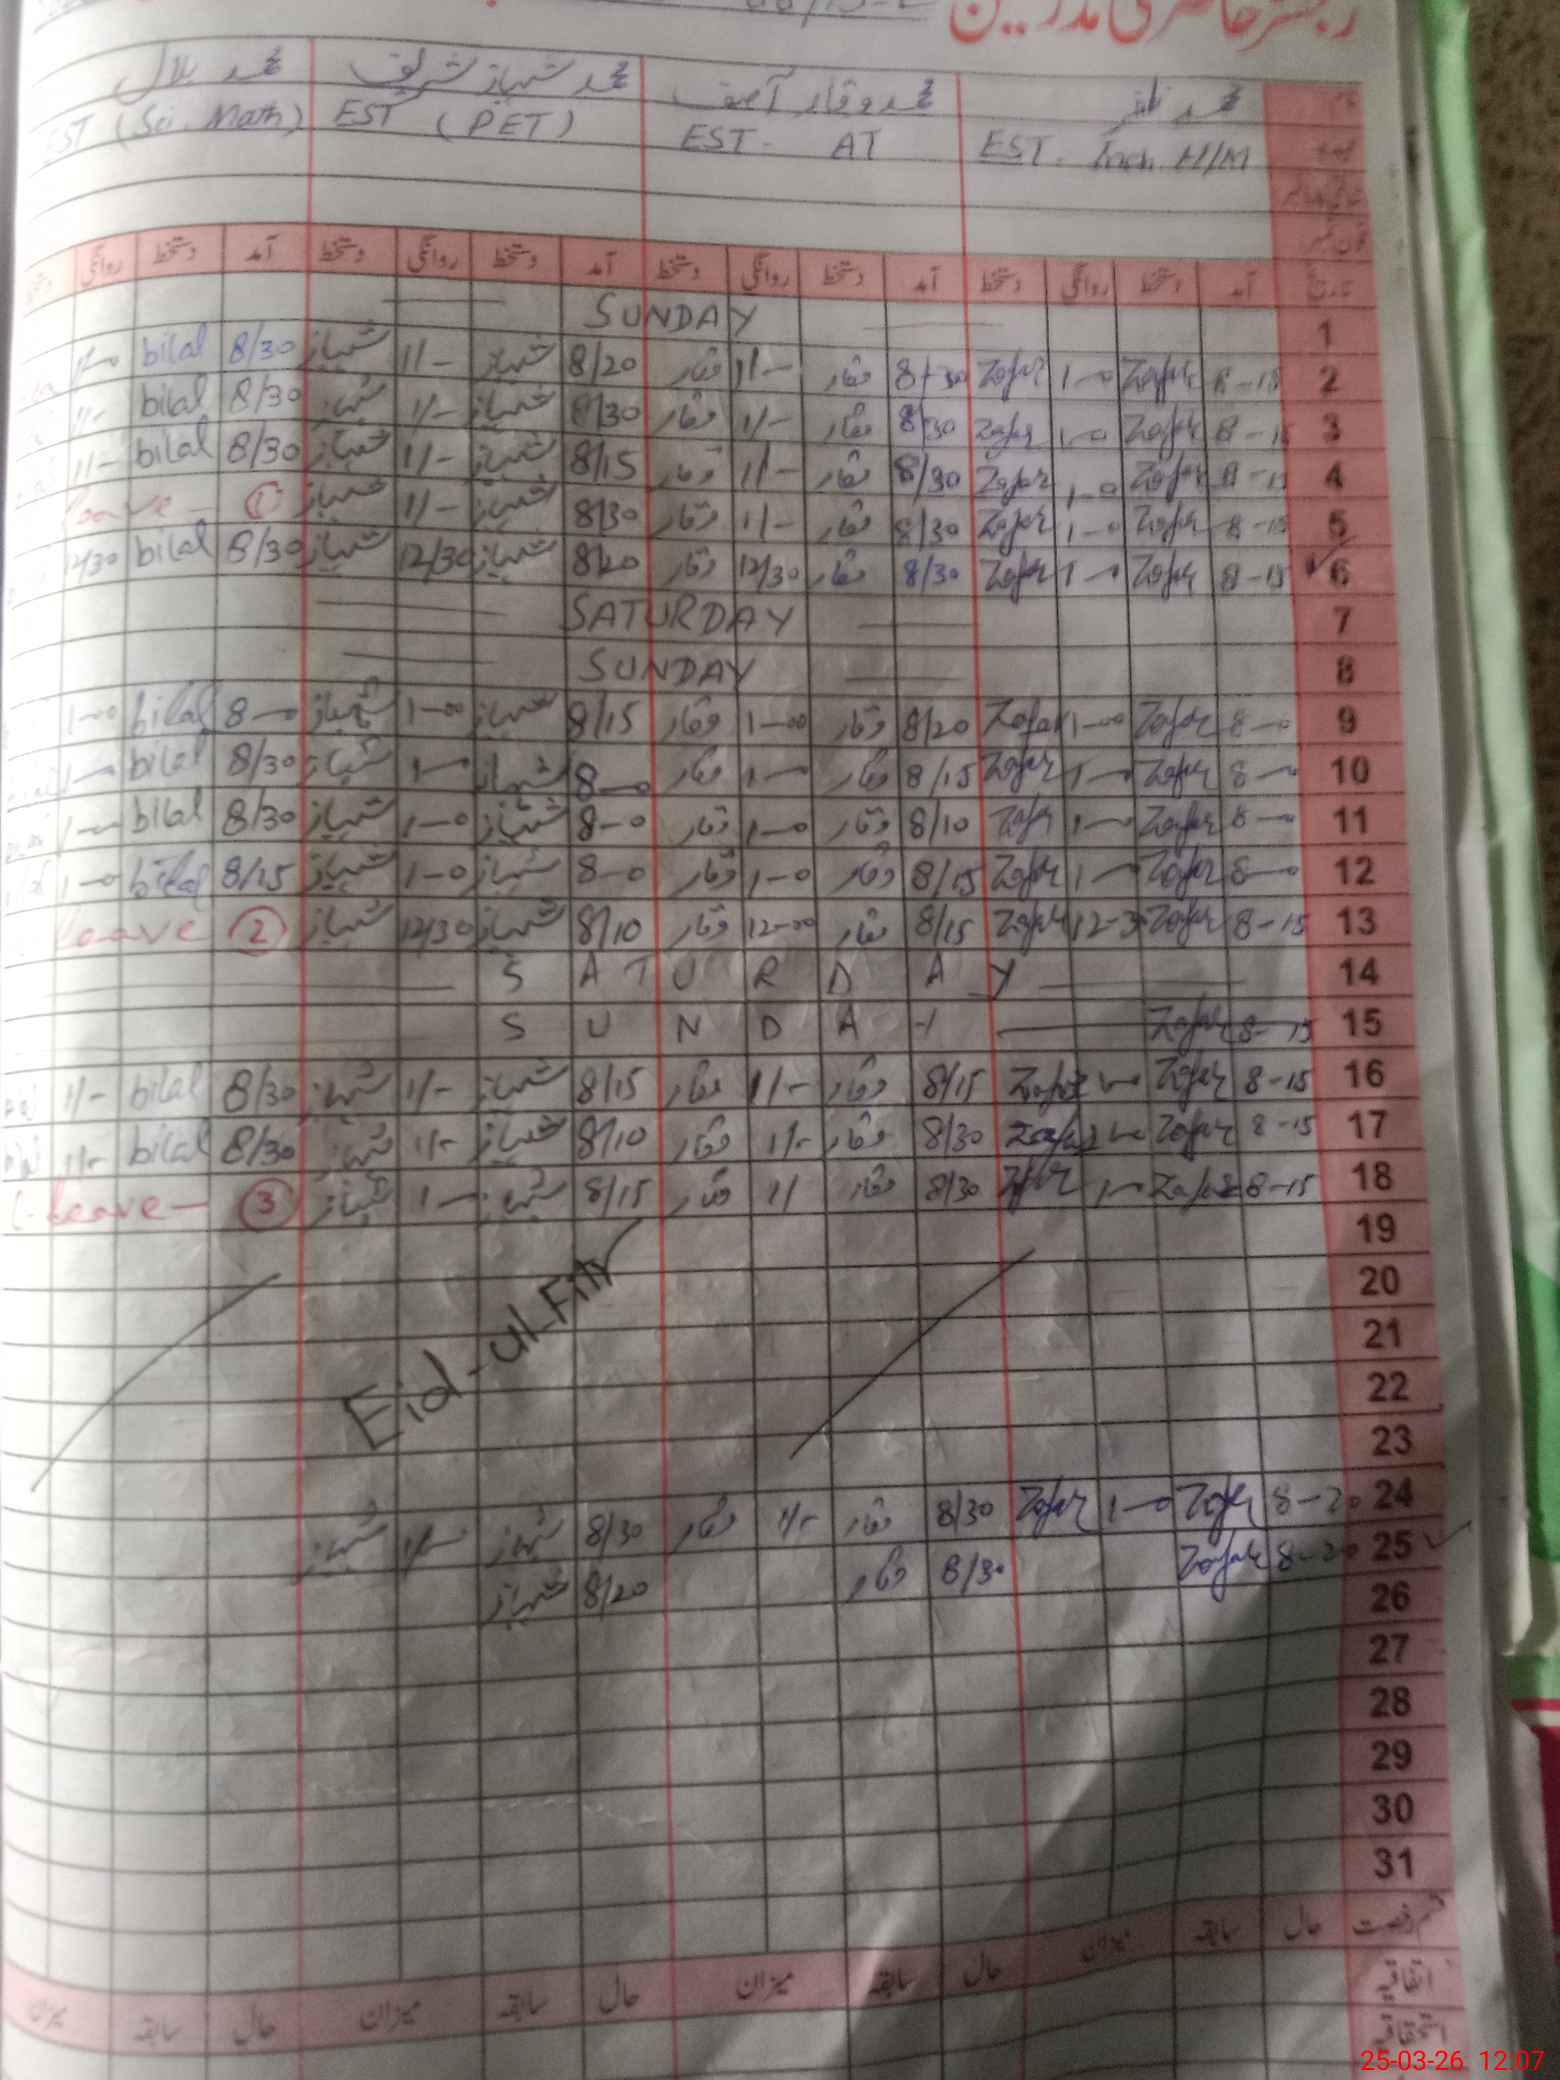 رجسٹر حاضری مدرسین
محمد ظفر محمد وقار آصف محمد شہباز شریف محمد بلال
EST. Inch. H/M EST - AT EST (PET) EST (Sci. Math)
تاریخ آمد دستخط روانگی دستخط آمد دستخط روانگی دستخط آمد دستخط روانگی دستخط آمد دستخط روانگی
1 SUNDAY
2 8-15 Zafar 1-0 Zafar 8/30 وقار 1/- وقار 8/20 شہباز 1/- شہباز 8/30 bilal
3 8-15 Zafar 1-0 Zafar 8/30 وقار 1/- وقار 8/30 شہباز 1/- شہباز 8/30 bilal 1/-
4 8-15 Zafar 1-0 Zafar 8/30 وقار 1/- وقار 8/15 شہباز 1/- شہباز 8/30 bilal 1/-
5 8-15 Zafar 1-0 Zafar 8/30 وقار 1/- وقار 8/30 شہباز 1/- شہباز 1 leave
6 8-15 Zafar 1-0 Zafar 8/30 وقار 12/30 وقار 8/20 شہباز 12/30 شہباز 8/30 bilal 12/30
7 SATURDAY
8 SUNDAY
9 8-0 Zafar 1-00 Zafar 8/20 وقار 1-00 وقار 8/15 شہباز 1-00 شہباز 8-0 bilal 1-00
10 8-0 Zafar 1-0 Zafar 8/15 وقار 1-0 وقار 8-0 شہباز 1-0 شہباز 8/30 bilal 1-0
11 8-0 Zafar 1-0 Zafar 8/10 وقار 1-0 وقار 8-0 شہباز 1-0 شہباز 8/30 bilal 1-0
12 8-0 Zafar 1-0 Zafar 8/15 وقار 1-0 وقار 8-0 شہباز 1-0 شہباز 8/15 bilal 1-0
13 8-15 Zafar 12-3 Zafar 8/15 وقار 12-00 وقار 8/10 شہباز 12/30 شہباز 2 leave
14 SATURDAY
15 8-15 Zafar SUNDAY
16 8-15 Zafar 1-0 Zafar 8/15 وقار 1/- وقار 8/15 شہباز 1/- شہباز 8/30 bilal 1/-
17 8-15 Zafar 1-0 Zafar 8/30 وقار 1/- وقار 8/10 شہباز 1/- شہباز 8/30 bilal 1/-
18 8-15 Zafar 1-0 Zafar 8/30 وقار 1/ وقار 8/15 شہباز 1-0 شہباز 3 leave
19
20
21 Eid-ul-Fitr
22
23
24 8-20 Zafar 1-0 Zafar 8/30 وقار 1/- وقار 8/30 شہباز 1/- شہباز
25 8-20 Zafar 8/30 وقار 8/20 شہباز
26
27
28
29
30
31
قسم رخصت حال سابقہ میزان حال سابقہ میزان حال سابقہ میزان حال سابقہ میزان
اتفاقیہ
استحقاقیہ
25-03-26 12:07